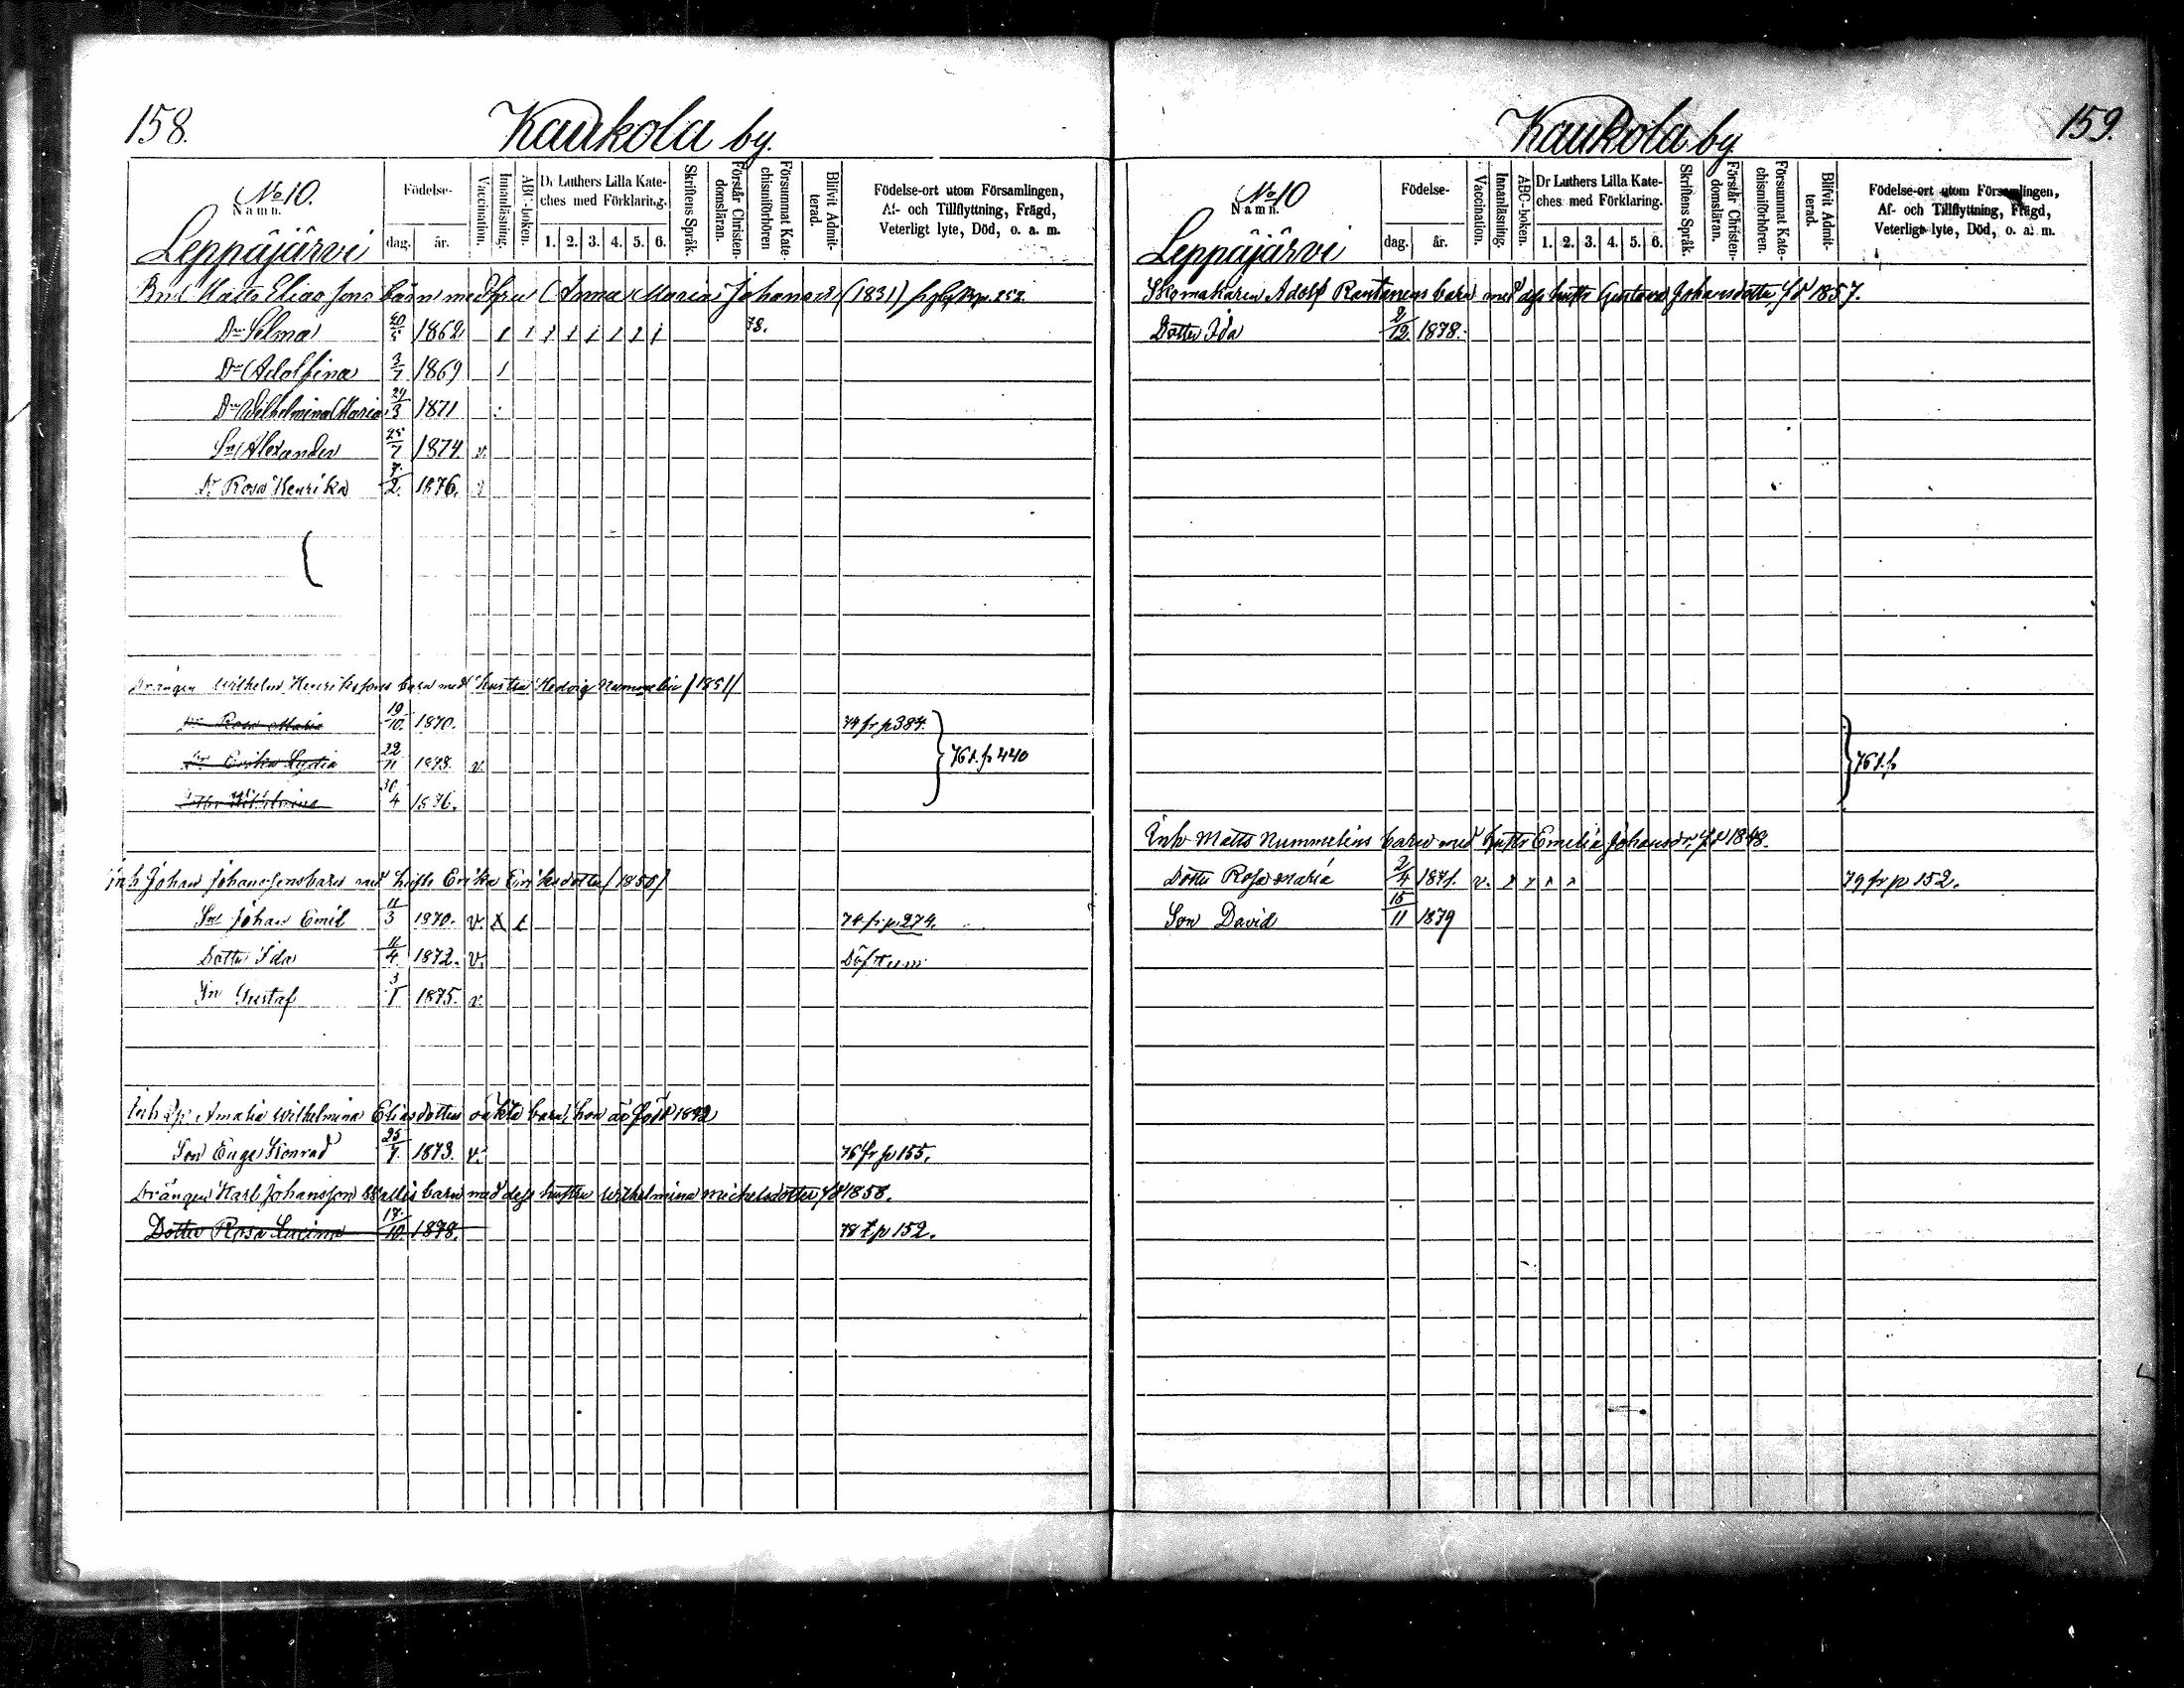 158.
Kaukola by.
No 10.
Namn.
Leppäjärvi
Födelse-
dag. år.
Vaccination.
Innanläsning.
ABC-boken.
Dr Luthers Lilla Kate-
ches med Förklaring.
1. 2. 3. 4. 5. 6.
Skriftens Språk.
Förstår Christen-
domsläran.
Försummat Kate-
chismiförhören
Blifvit Admit-
terad.
Födelse-ort utom Församlingen,
Af- och Tillflyttning, Frägd,
Veterligt lyte, Död, o. a. m.
Matts Eliassons barn med Maria Johansdr (1831) p. 252
Dr Selma 20/5 1862 1 1 1 1 1 1 1 1 78.
Dr Adolfina 3/7 1869 1
Dr Wilhelmina Maria 24/3 1871
Sn Alexander 25/7 1874. v.
Dr Rosa Henrika 7/2. 1876. v
Drängen Wilhelm Henrikssons barn med hustru Hedvig Nummelin /1851/
Dr Rosa Maria 19/10. 1870. 74 fr p 384.
Dr Erika Lydia 22/11 1873. v. 76 t. p 440
Dotter Wilhelmina 30/4 1876.
Inh Johan Johanssons barn med hustr Erika Eriksdotter /1850/
Sn Johan Emil 11/3 1870. v. x 74 fr p 274.
Dotter Ida 11/4 1872. v. Döfstum
Sn Gustaf 3/1 1875. v.
Inh Amalia Wilhelmina Eliasdotters oäkta barn, hon är född 1842
Son Konrad 25/7. 1873. v. 76 fr p 155.
Drängen Karl Johansson barn med dess hustru Wilhelmina Michelsdotter fd 1858.
Dotter Rosa 17/10. 1878. 78 t p 152.
159.
Kaukola by
No 10
Namn.
Leppäjärvi
Födelse-
dag. år.
Vaccination.
Innanläsning.
ABC-boken.
Dr Luthers Lilla Kate-
ches med Förklaring.
1. 2. 3. 4. 5. 6.
Skriftens Språk.
Förstår Christen-
domsläran.
Försummat Kate-
chismiförhören.
Blifvit Admit-
terad.
Födelse-ort utom Församlingen,
Af- och Tillflyttning, Frägd,
Veterligt lyte, Död, o. a. m.
Skomakaren Adolf Rantanens barn med dess hustr Gustava Johansdotter fd 1857.
Dotter Ida 2/12. 1878.
76 t. p
Inh Matts Nummelins barn med hustr Emelia Johansdr. fd 1848.
Dotter Rosa Maria 2/4 1871. v. x x x x 79 fr p 152.
Son David 15/11 1879